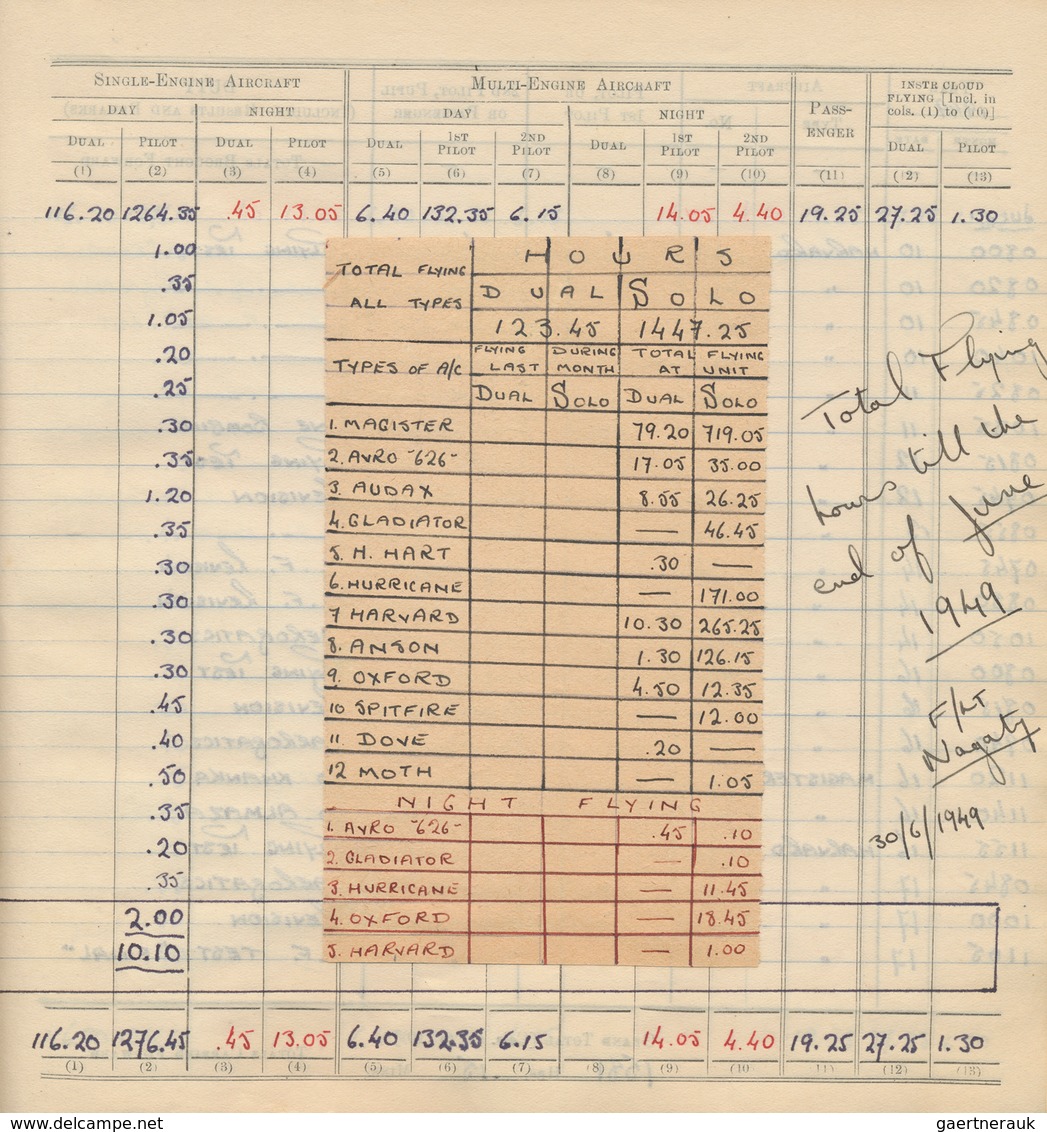 SINGLE-ENGINE AIRCRAFT MULTI-ENGINE AIRCRAFT PASS-ENGER INSTR CLOUD FLYING [Incl. in cols. (1) to (10)]
DAY NIGHT DAY NIGHT
DUAL PILOT DUAL PILOT DUAL 1ST PILOT 2ND PILOT DUAL 1ST PILOT 2ND PILOT DUAL PILOT
(1) (2) (3) (4) (5) (6) (7) (8) (9) (10) (11) (12) (13)
116.20 1264.35 .45 13.05 6.40 132.35 6.15 14.05 4.40 19.25 27.25 1.30
1.00
.35
1.05
.20
.25
.30
.35
1.20
.35
.30
.30
.30
.30
.45
.40
.50
.35
.20
.35
2.00
10.10
TOTAL FLYING ALL TYPES HOURS
DUAL SOLO
123.45 1447.25
TYPES OF A/C FLYING DURING LAST MONTH TOTAL FLYING AT UNIT
DUAL SOLO DUAL SOLO
1. MAGISTER 79.20 719.05
2. AVRO -626- 17.05 35.00
3. AUDAX 8.55 26.25
4. GLADIATOR — 46.45
5. H. HART .30 —
6. HURRICANE — 171.00
7 HARVARD 10.30 265.25
8. ANSON 1.30 126.15
9. OXFORD 4.50 12.35
10 SPITFIRE — 12.00
11. DOVE .20 —
12 MOTH — 1.05
NIGHT FLYING
1. AVRO -626- .45 .10
2. GLADIATOR — .10
3. HURRICANE — 11.45
4. OXFORD — 18.45
5. HARVARD — 1.00
Total Flying
hours till the
end of June
1949
F/LT
Nagaty
30/6/1949
116.20 1276.45 .45 13.05 6.40 132.35 6.15 14.05 4.40 19.25 27.25 1.30
(1) (2) (3) (4) (5) (6) (7) (8) (9) (10 11) (12) (13)
gaertnerauk